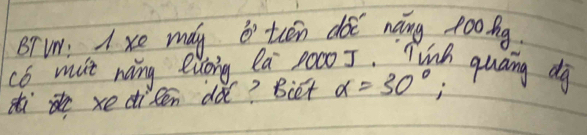 BTVN: 1 xe máy ở trên dốc nặng 100kg.
có mức năng lượng là 1000 J. Tính quãng đg
đi xe đi lên dốc? Biết α = 30°;